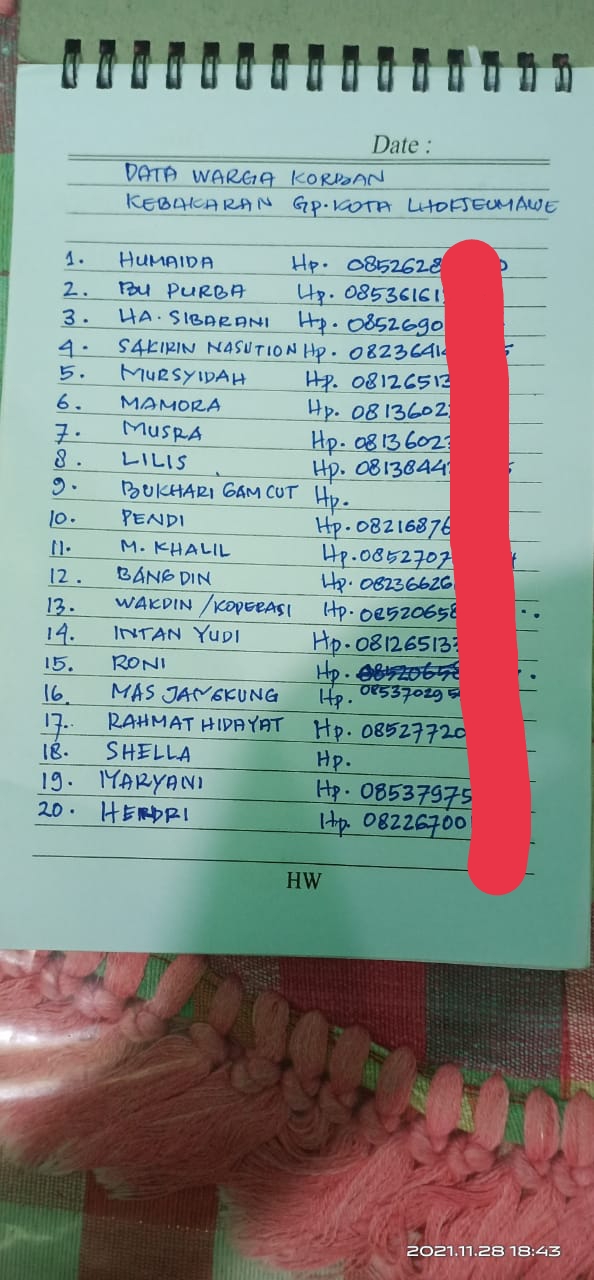 Date :
DATA WARGA KORBAN
KEBAKARAN GP. KOTA LHOKSEUMAWE
1. HUMAIDA Hp. 0852628
2. BU PURBA Hp. 08536161
3. HA. SIBARANI Hp. 0852690
4. SAKIRIN NASUTION Hp. 08236414
5. MURSYIDAH Hp. 08126513
6. MAMORA Hp. 0813602
7. MUSRA Hp. 0813602
8. LILIS Hp. 0813844
9. BUKHARI GAMCUT Hp.
10. PENDI Hp. 08216876
11. M. KHALIL Hp. 0852707
12. BANG DIN Hp. 08236626
13. WAKDIN / KOPERASI Hp. 08520658
14. INTAN YUDI Hp. 08126513
15. RONI Hp.
16. MAS JANGKUNG Hp. 08537029
17. RAHMAT HIDAYAT Hp. 08527720
18. SHELLA Hp.
19. MARYANI Hp. 08537975
20. HENDRI Hp. 08226700
HW
2021.11.28 18:43